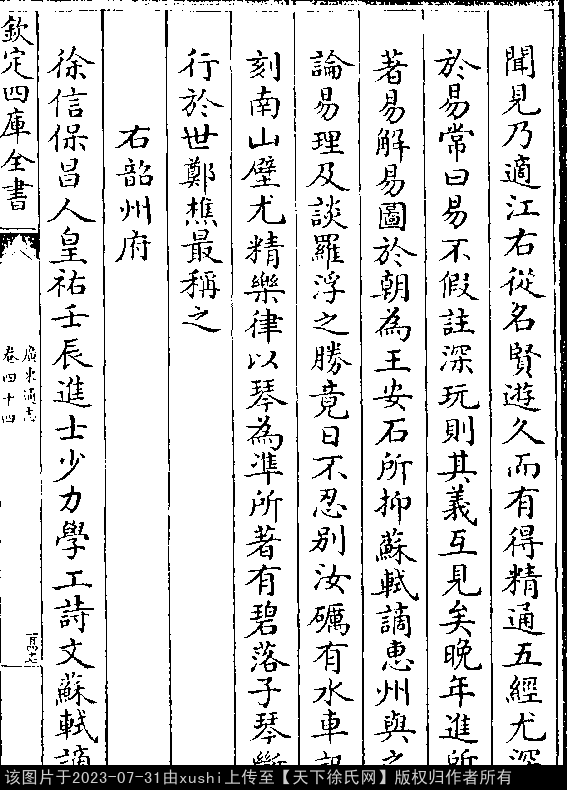 聞見乃適江右從名賢遊久而有得精通五經尤深
於易常曰易不假註深玩則其義互見矣晚年進所
著易解易圖於朝為王安石所抑蘇軾謫惠州與之
論易理及談羅浮之勝竟日不忍別汝礪有水車記
刻南山壁尤精樂律以琴為準所著有碧落子琴斷
行於世鄭樵最稱之
右韶州府
徐信保昌人皇祐壬辰進士少力學工詩文蘇軾謫
欽定四庫全書
廣東通志
卷四十四
该图片于2023-07-31由xushi上传至【天下徐氏网】版权归作者所有